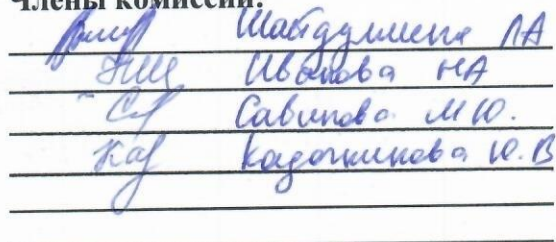 Члены комиссии:
Шайдуллина ЛА
Иванова НА
Савинова М.Ю.
Кадочникова Ю.В